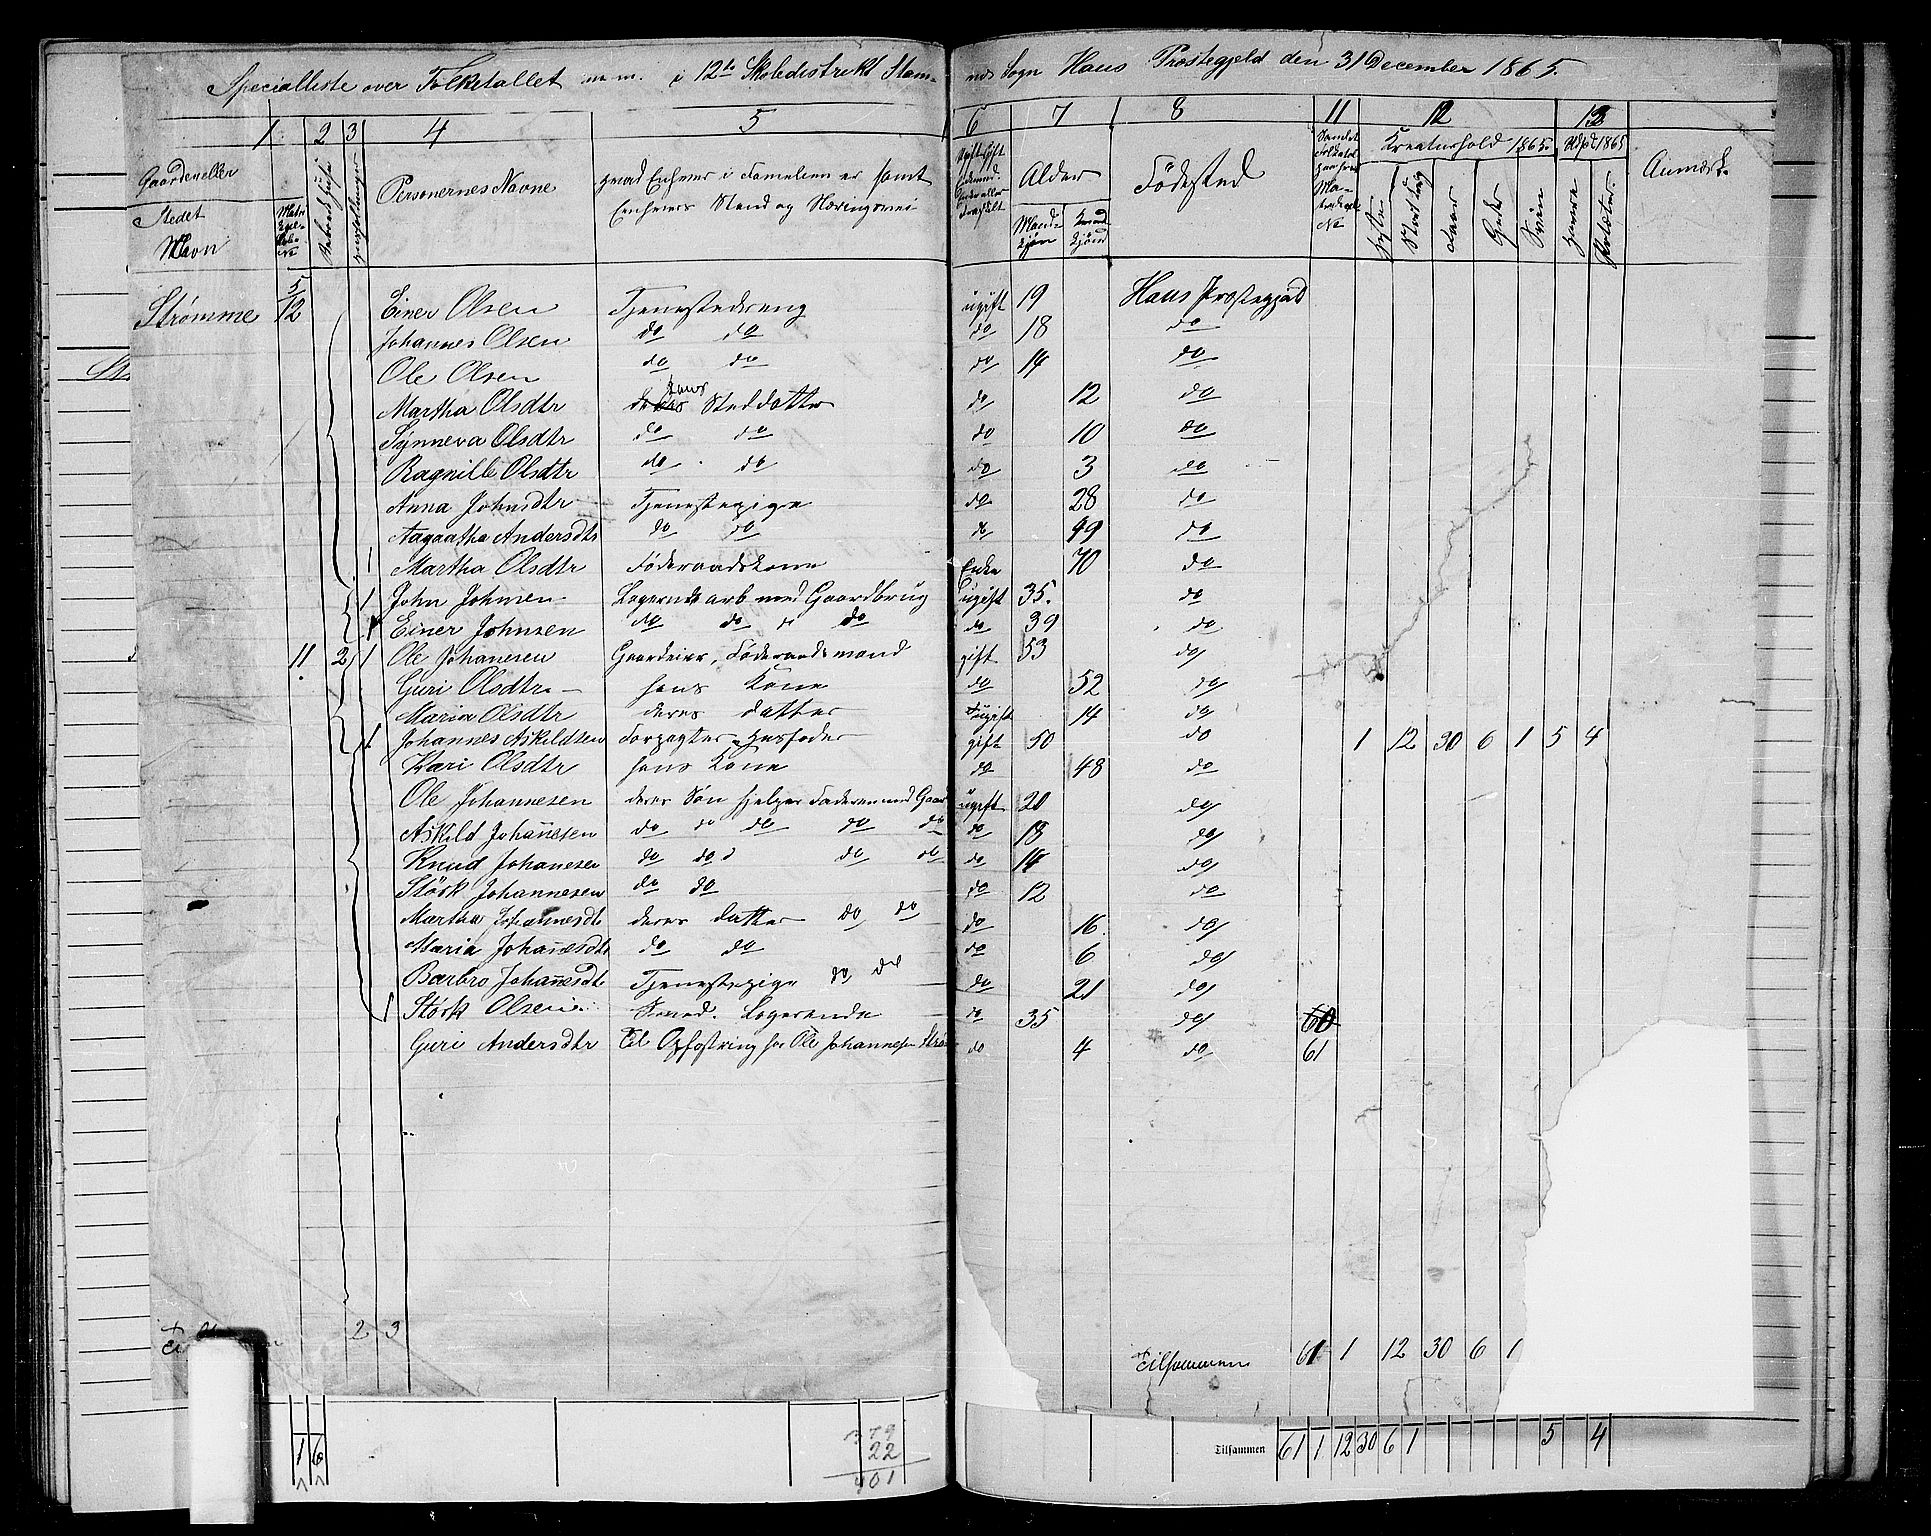 Specialliste over Folketallet m. m. i 12te Skoledistrikt Stam- nes Sogn Haus Præstegjeld den 31 December 1865.
1 2 3 4 5 6 7 8 11 12 13
Gaarden eller Stedet Navn Personernes Navne hvad Enhver i Familien er samt Enhvers Stand og Næringsvei Alder Mand- kjøn Kvind kjøn Fødested Kreaturhold 1865. Udsæd 1865 Heste Stort Qvæg Faar Geder Sviin Havre Poteter Anmærk.
Strømme 5/12 Einer Olsen Tjenestedreng ugift 19 Haus Præstegjeld
Johannes Olsen do do do 18 do
Ole Olsen do do do 14 do
Martha Olsdtr hans Steddatter do 12 do
Synneva Olsdtr do do do 10 do
Ragnille Olsdtr do do do 3 do
Anna Johnsdtr Tjenestepige do 28 do
Aagaatha Andersdtr do do do 49 do
1 Martha Olsdtr Føderaadskone Enke 70 do
1 John Johnsen Logerende arb med Gaardbrug ugift 35. do
1 Einer Johnsen do do " do do 39 do
11. 2 1 Ole Johanesen Gaardeier, Føderaadsmand gift 53 do
Guri Olsdtr hans Kone do 52 do
Maria Olsdtr deres Datter ugift 14 do
1 Johannes Askildsen Forpagter Husfader gift 50 do 1 12 30 6 1 5 4
Kari Olsdtr hans Kone do 48 do
Ole Johannesen deres Søn hjelper Faderen med Gaar ugift 20 do
Askild Johañesen do do do do do do 18 do
Knud Johanesen do do do do do 14 do
Størk Johannesen do do do 12 do
Martha Johannesdt deres Datter do do do 16 do
Maria Johañesdtr do do do 6 do
Barbro Johañesdt Tjenestepige do do do 21 do
1 Størk Olsen Smed. Logerende do 35 do 60
Guri Andersdtr til Opfostring hos Ole Johannesen Strø do 4 do 61
2 3
Tilsammen 61 1 12 30 6 1
1 6
379
22
401
Tilsammen 61 1 12 30 6 1 5 4